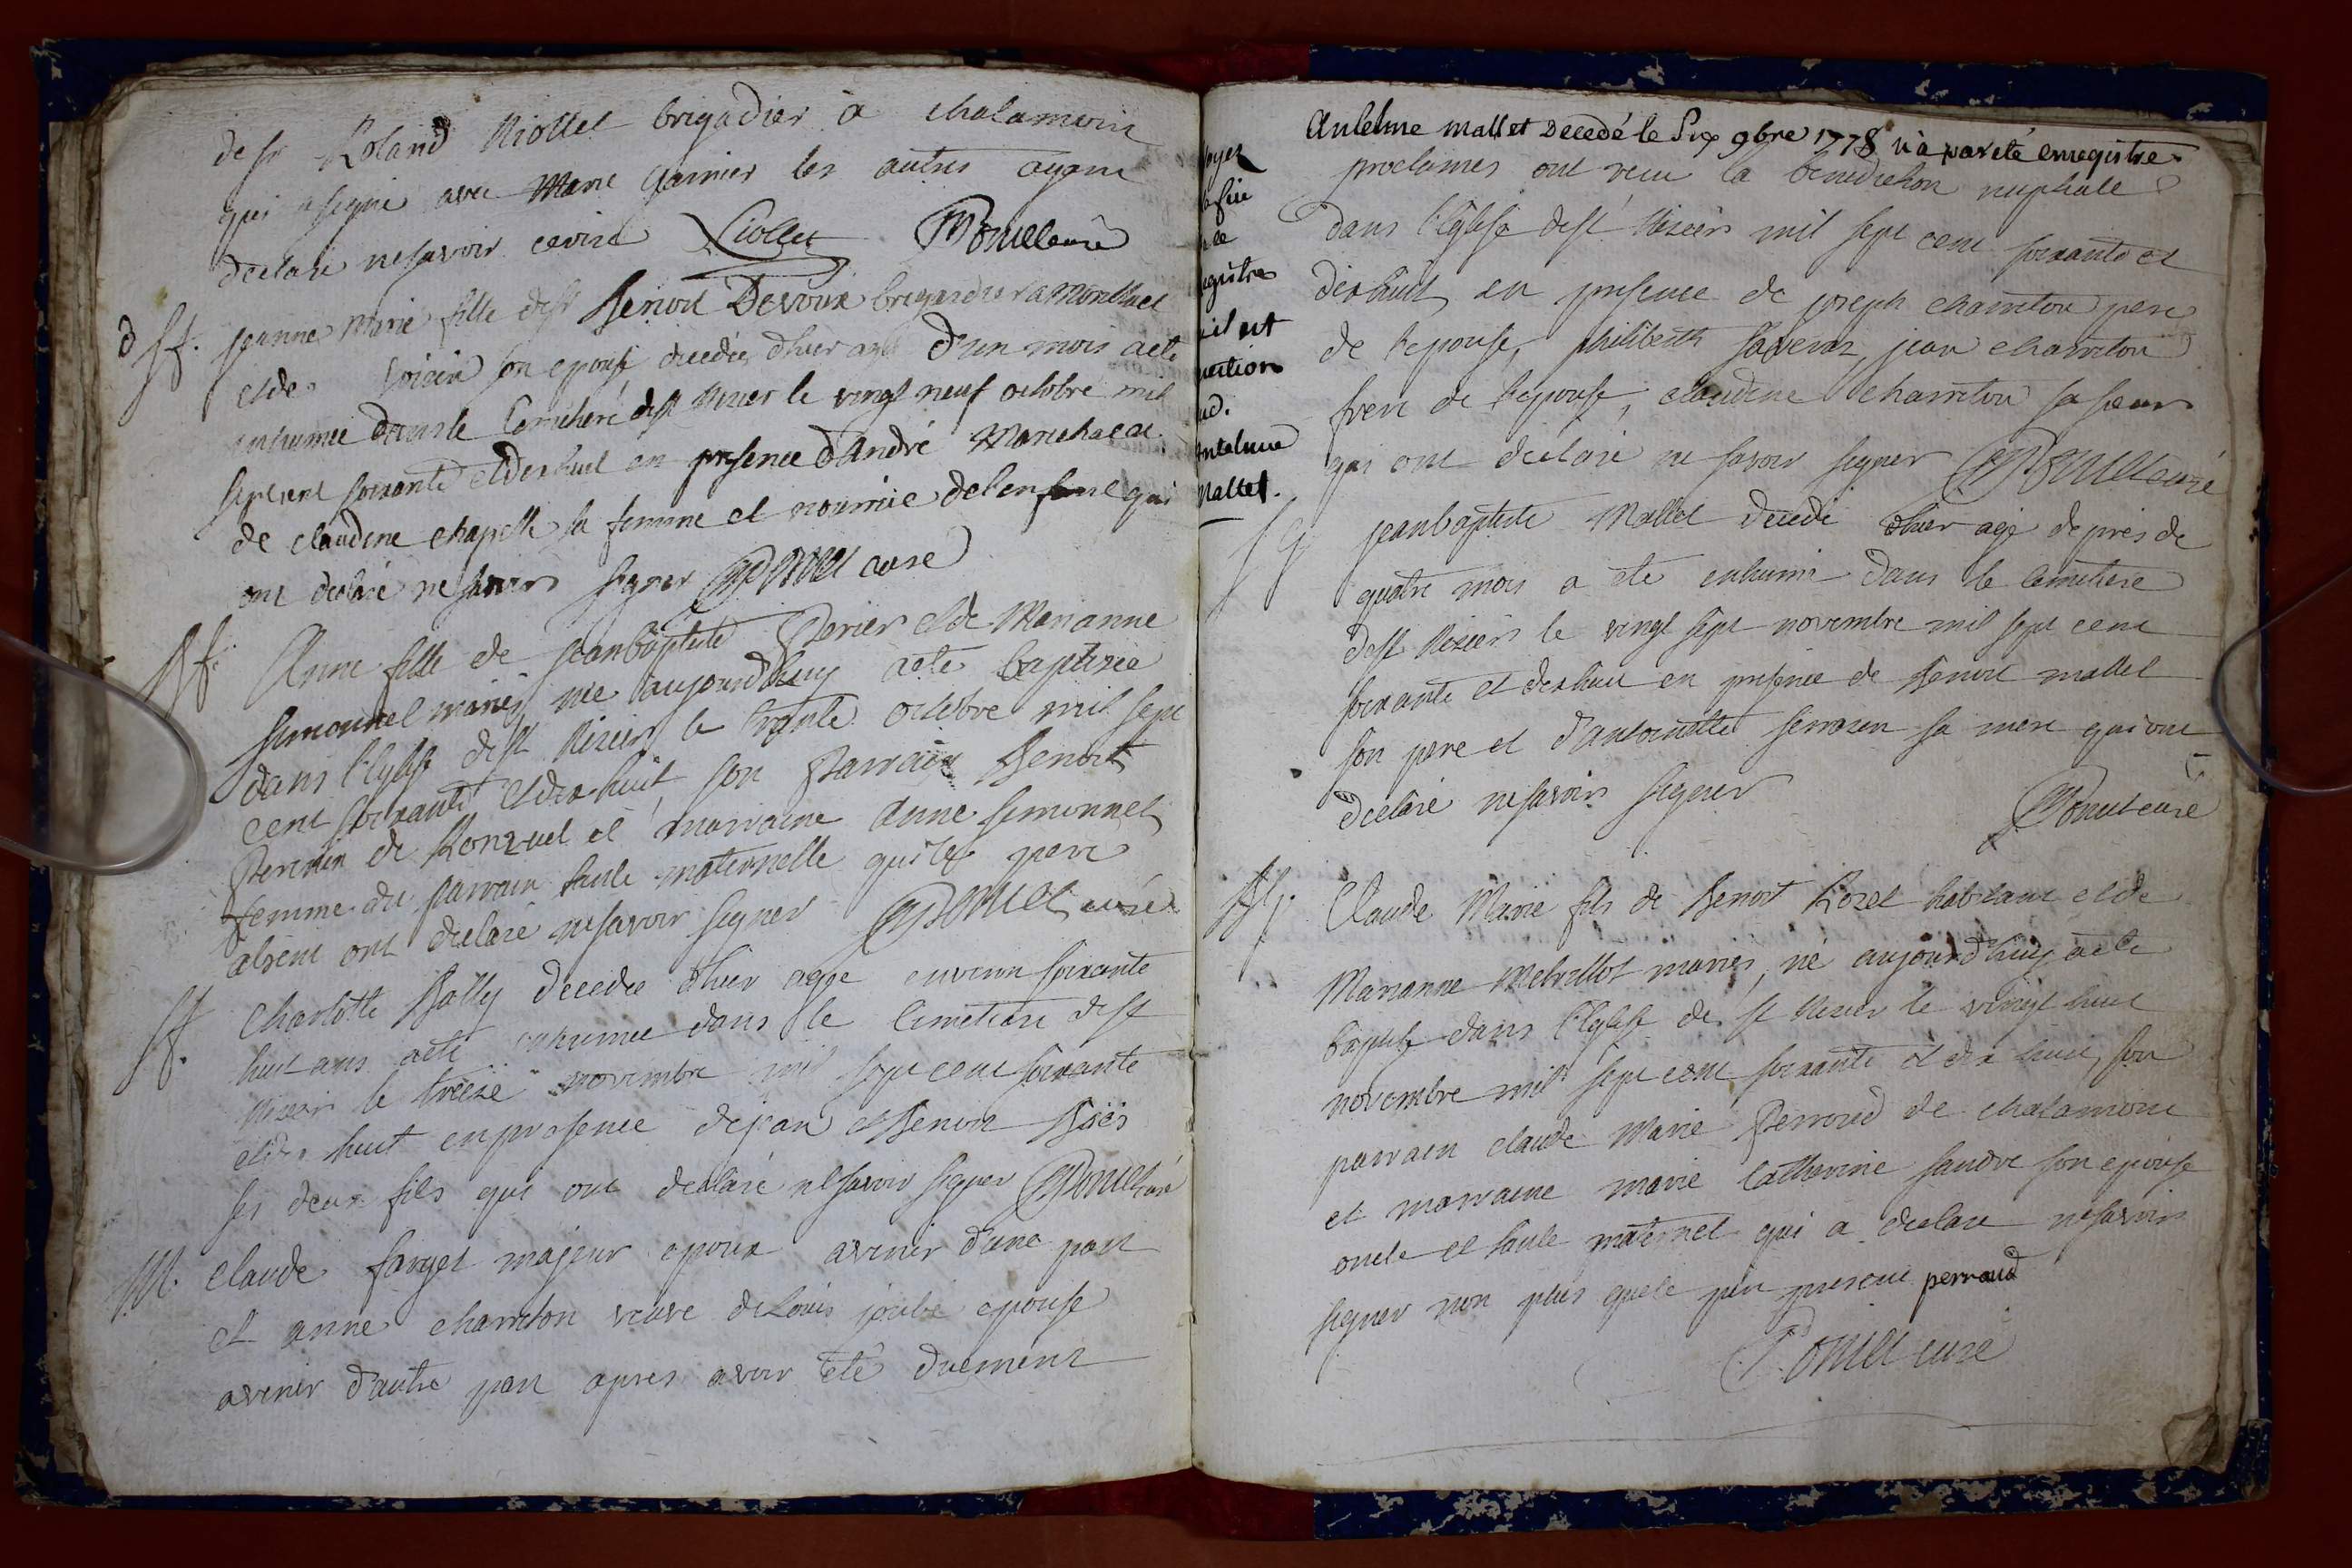 de sr Roland Riollet brigadier à chalamoin
qui a signé avec Marie Garnier les autres ayant
declaré ne savoir ecrire Riollet Poncet curé
d ff. jeanne Marie fille de sr Benoit Devoux brigadier a Montluel
et de son epouse decedée d'hier agée d'un mois a eté
inhumée dans le Cemitiere de st Nizier le vingt neuf octobre mil
sept cent soixante et dix huit en presence d'André Marechal et
de claudine chapelle sa femme et nourrice de l'enfant qui
ont declaré ne savoir signer Poncet curé
Anne fille de jeanbaptiste Perier et de Marianne
Simonnet mariés née aujourd'huy a eté baptisée
dans l'Eglise de st Nizier le trente octobre mil sept
cent soixante et dix huit son Parrain Benoit
de Ronzuel et marraine Anne Simonnet
femme du parrain tante maternelle qui le pere
absent ont declaré ne savoir signer Poncet curé
ff. Charlotte Bally decedée d'hier agée environ soixante
huit ans a eté inhumée dans le Cimetiere de st
Nizier le treize novembre mil sept cent soixante
et dix huit en presence de jean et Benoit
ses deux fils qui ont declaré ne savoir signer Poncet curé
M. Claude farget majeur epoux avenir d'une part
et anne charreton veuve de Louis joubé epouse
avenir d'autre part apres avoir eté duement
Antelme mallet Decedé le Six 9bre 1778 n'a pas eté enregistré
proclamés ont recu la benediction nuptiale
dans l'Eglise de st Nizier mil sept cent soixante et
dix huit en presence de joseph charreton pere
de l'epouse, philibert jean charreton
frere de l'epouse, claudine charreton sa soeur
qui ont declaré ne savoir signer Poncet curé
oyez
a fin
egistre
il est
uestion
ud.
Antelme
Mallet.
jeanbaptiste Mallet decedé d'hier agé de près de
quatre mois a eté inhumé dans le cemitiere
de st Nizier le vingt sept novembre mil sept cent
soixante et dix huit en presence de Benoit mallet
son pere et d'antoinette sa mere qui ont
declaré ne savoir signer
Poncet curé
Claude Marie fils de Benoit Rozet habitant et de
Marianne mariés, né aujourd'huy a eté
baptisé dans l'Eglise de st Nizier le vingt huit
novembre mil sept cent soixante et dix huit, son
parrain claude Marie Perroud de chalamoin
et marraine marie Catherine son epouse
oncle et tante maternel qui a declaré ne savoir
signer non plus que le pere present perraud
Poncet curé